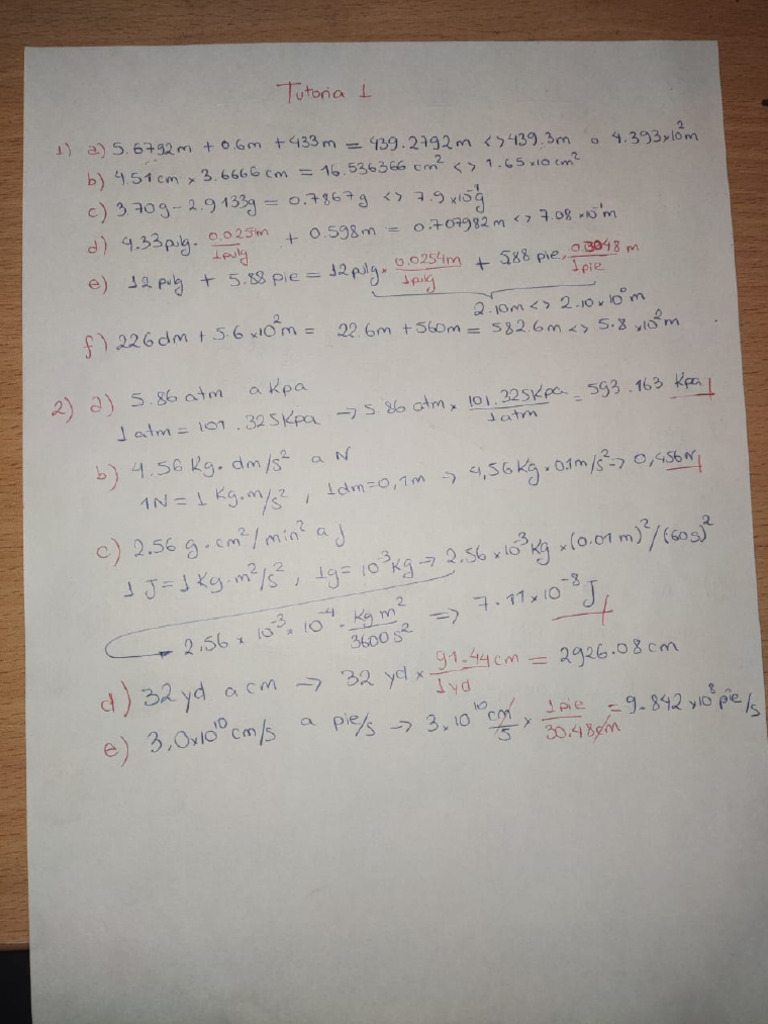 Tutoria 1
1) a) 5.6792m + 0.6m + 433m = 439.2792m <> 439.3m o 4.393x10²m
b) 4.51cm x 3.6666cm = 16.536366 cm² <> 1.65x10cm²
c) 3.70g - 2.9133g = 0.7867g <> 7.9x10⁻¹g
d) 4.33pulg. 0.025m/1pulg + 0.598m = 0.707982m <> 7.08x10⁻¹m
e) 12pulg + 5.88pie = 12pulg x 0.0254m/1pulg + 5.88 pie. 0.3048m/1pie
2.10m <> 2.10x10⁰m
f) 226dm + 5.6x10²m = 22.6m + 560m = 582.6m <> 5.8x10²m
2) a) 5.86 atm a Kpa
1 atm = 101.325Kpa → 5.86 atm x 101.325Kpa/1atm = 593.163 Kpa
b) 4.56 Kg.dm/s² a N
1N = 1 Kg.m/s², 1dm=0,1m → 4,56Kg x 0.1m/s² → 0,456N
c) 2.56 g.cm²/min² a J
1 J = 1 Kg.m²/s², 1g = 10⁻³Kg → 2.56 x 10⁻³Kg x (0.01m)²/(60s)²
2.56 x 10⁻³ x 10⁻⁴. Kg m²/3600s² => 7.11x10⁻⁸J
d) 32yd a cm → 32 yd x 91.44cm/1yd = 2926.08cm
e) 3.0x10¹⁰cm/s a pie/s → 3.10¹⁰ cm/s x 1pie/30.48cm = 9.842x10⁸pie/s